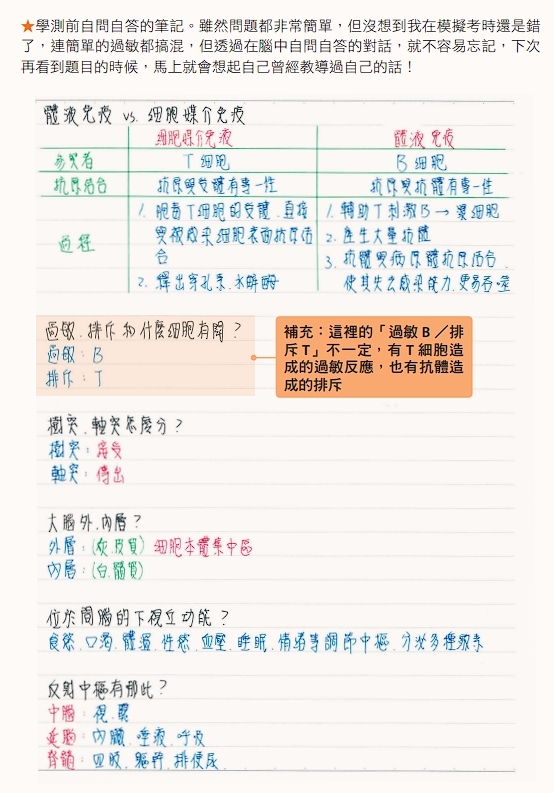 ★學測前自問自答的筆記。雖然問題都非常簡單，但沒想到我在模擬考時還是錯
了，連簡單的過敏都搞混，但透過在腦中自問自答的對話，就不容易忘記，下次
再看到題目的時候，馬上就會想起自己曾經教導過自己的話！
體液免疫 vs. 細胞媒介免疫
細胞媒介免疫 體液免疫
參與者 T 細胞 B 細胞
抗原結合 抗原與受體有專一性 抗原與抗體有專一性
過程
1. 胞毒T細胞的受體,直接
與被感染細胞表面抗原結
合
2. 釋出穿孔素.水解酶
1. 輔助T刺激B → 漿細胞
2. 產生大量抗體
3. 抗體與病原體抗原結合.
使其失去感染能力.更易吞噬
過敏.排斥和什麼細胞有關？
過敏：B
排斥：T
補充：這裡的「過敏 B／排
斥 T」不一定，有 T 細胞造
成的過敏反應，也有抗體造
成的排斥
樹突.軸突怎麼分？
樹突：接受
軸突：傳出
大腦外.內層？
外層：(灰.皮質) 細胞本體集中區
內層：(白.髓質)
位於間腦的下視丘功能？
食慾.口渴.體溫.性慾.血壓.睡眠.情緒等調節中樞.分泌多種激素
反射中樞有那些？
中腦：視.聽
延腦：內臟.唾液.呼吸
脊髓：四肢.軀幹.排便尿